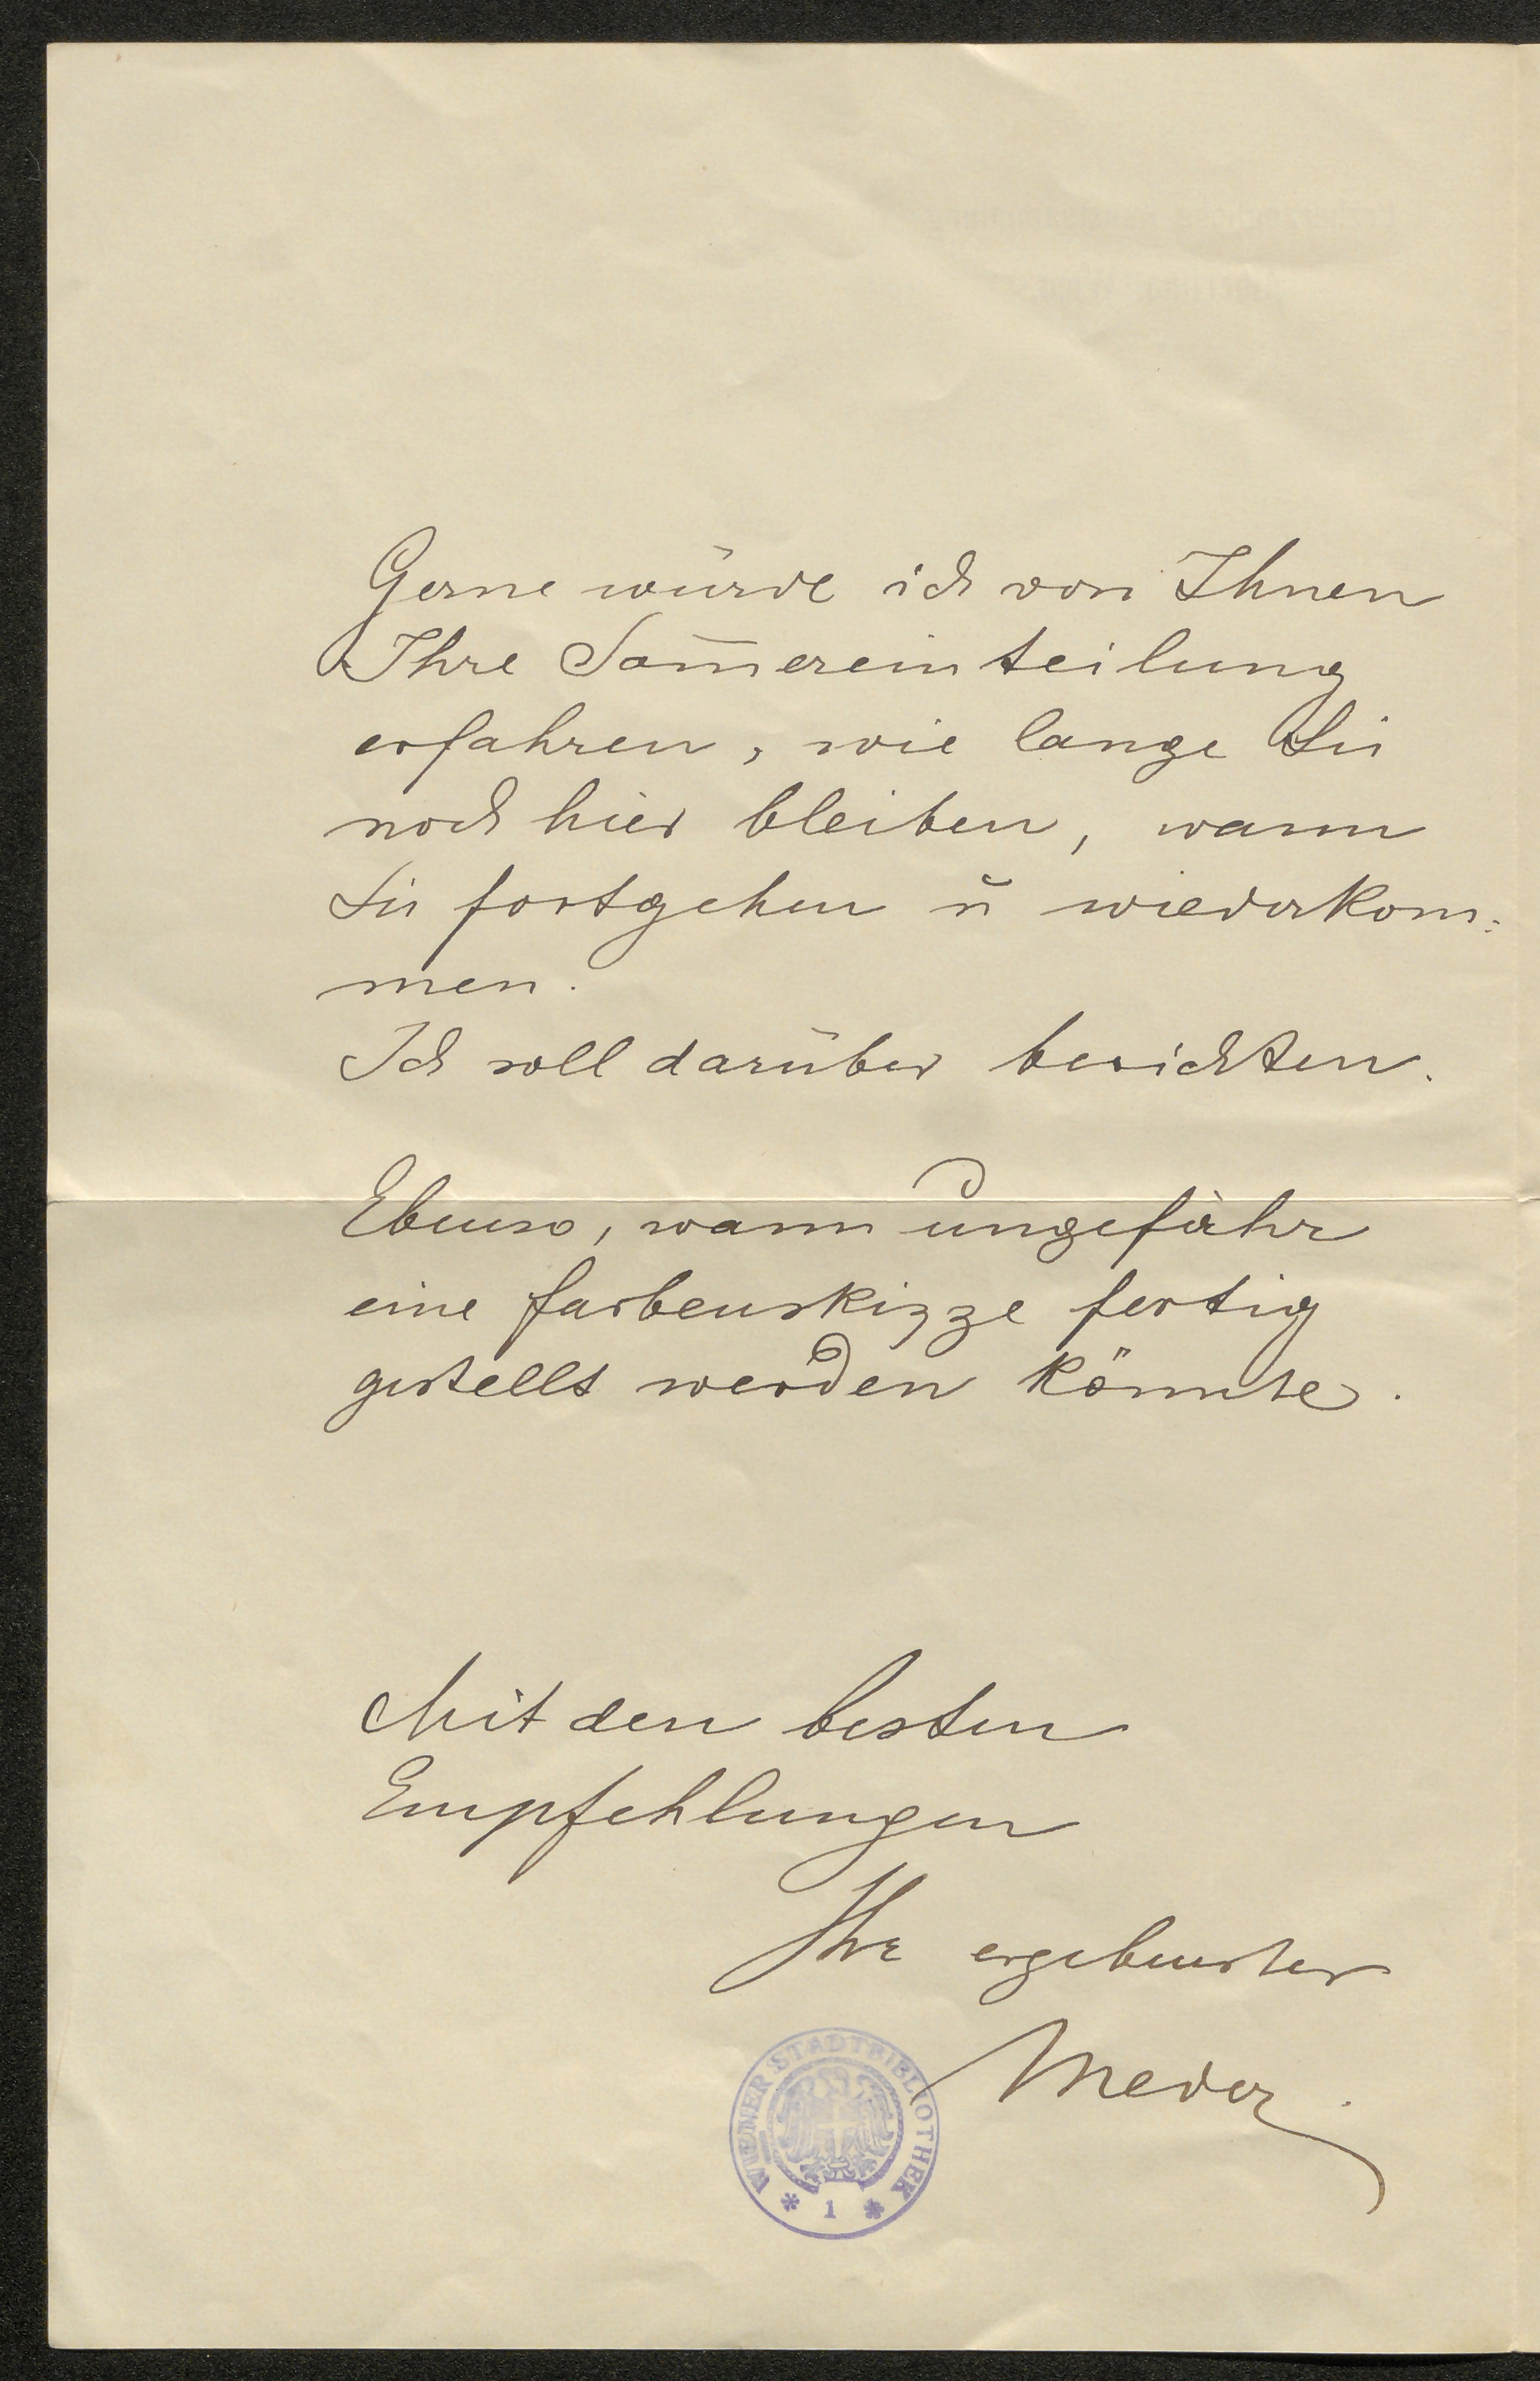 Gerne würde ich von Ihnen
Ihre Som̄ereinteilung
erfahren, wie lange Sie
noch hier bleiben, wann
Sie fortgehen ŭ wiederkom=
men.
Ich soll darüber berichten.
Ebenso, wann ungefähr
eine Farbenskizze fertig
gestellt werden könnte.
Mit den besten
Empfehlungen
Ihr ergebenster
Meder.
WIENER STADTBIBLIOTHEK
* 1 *